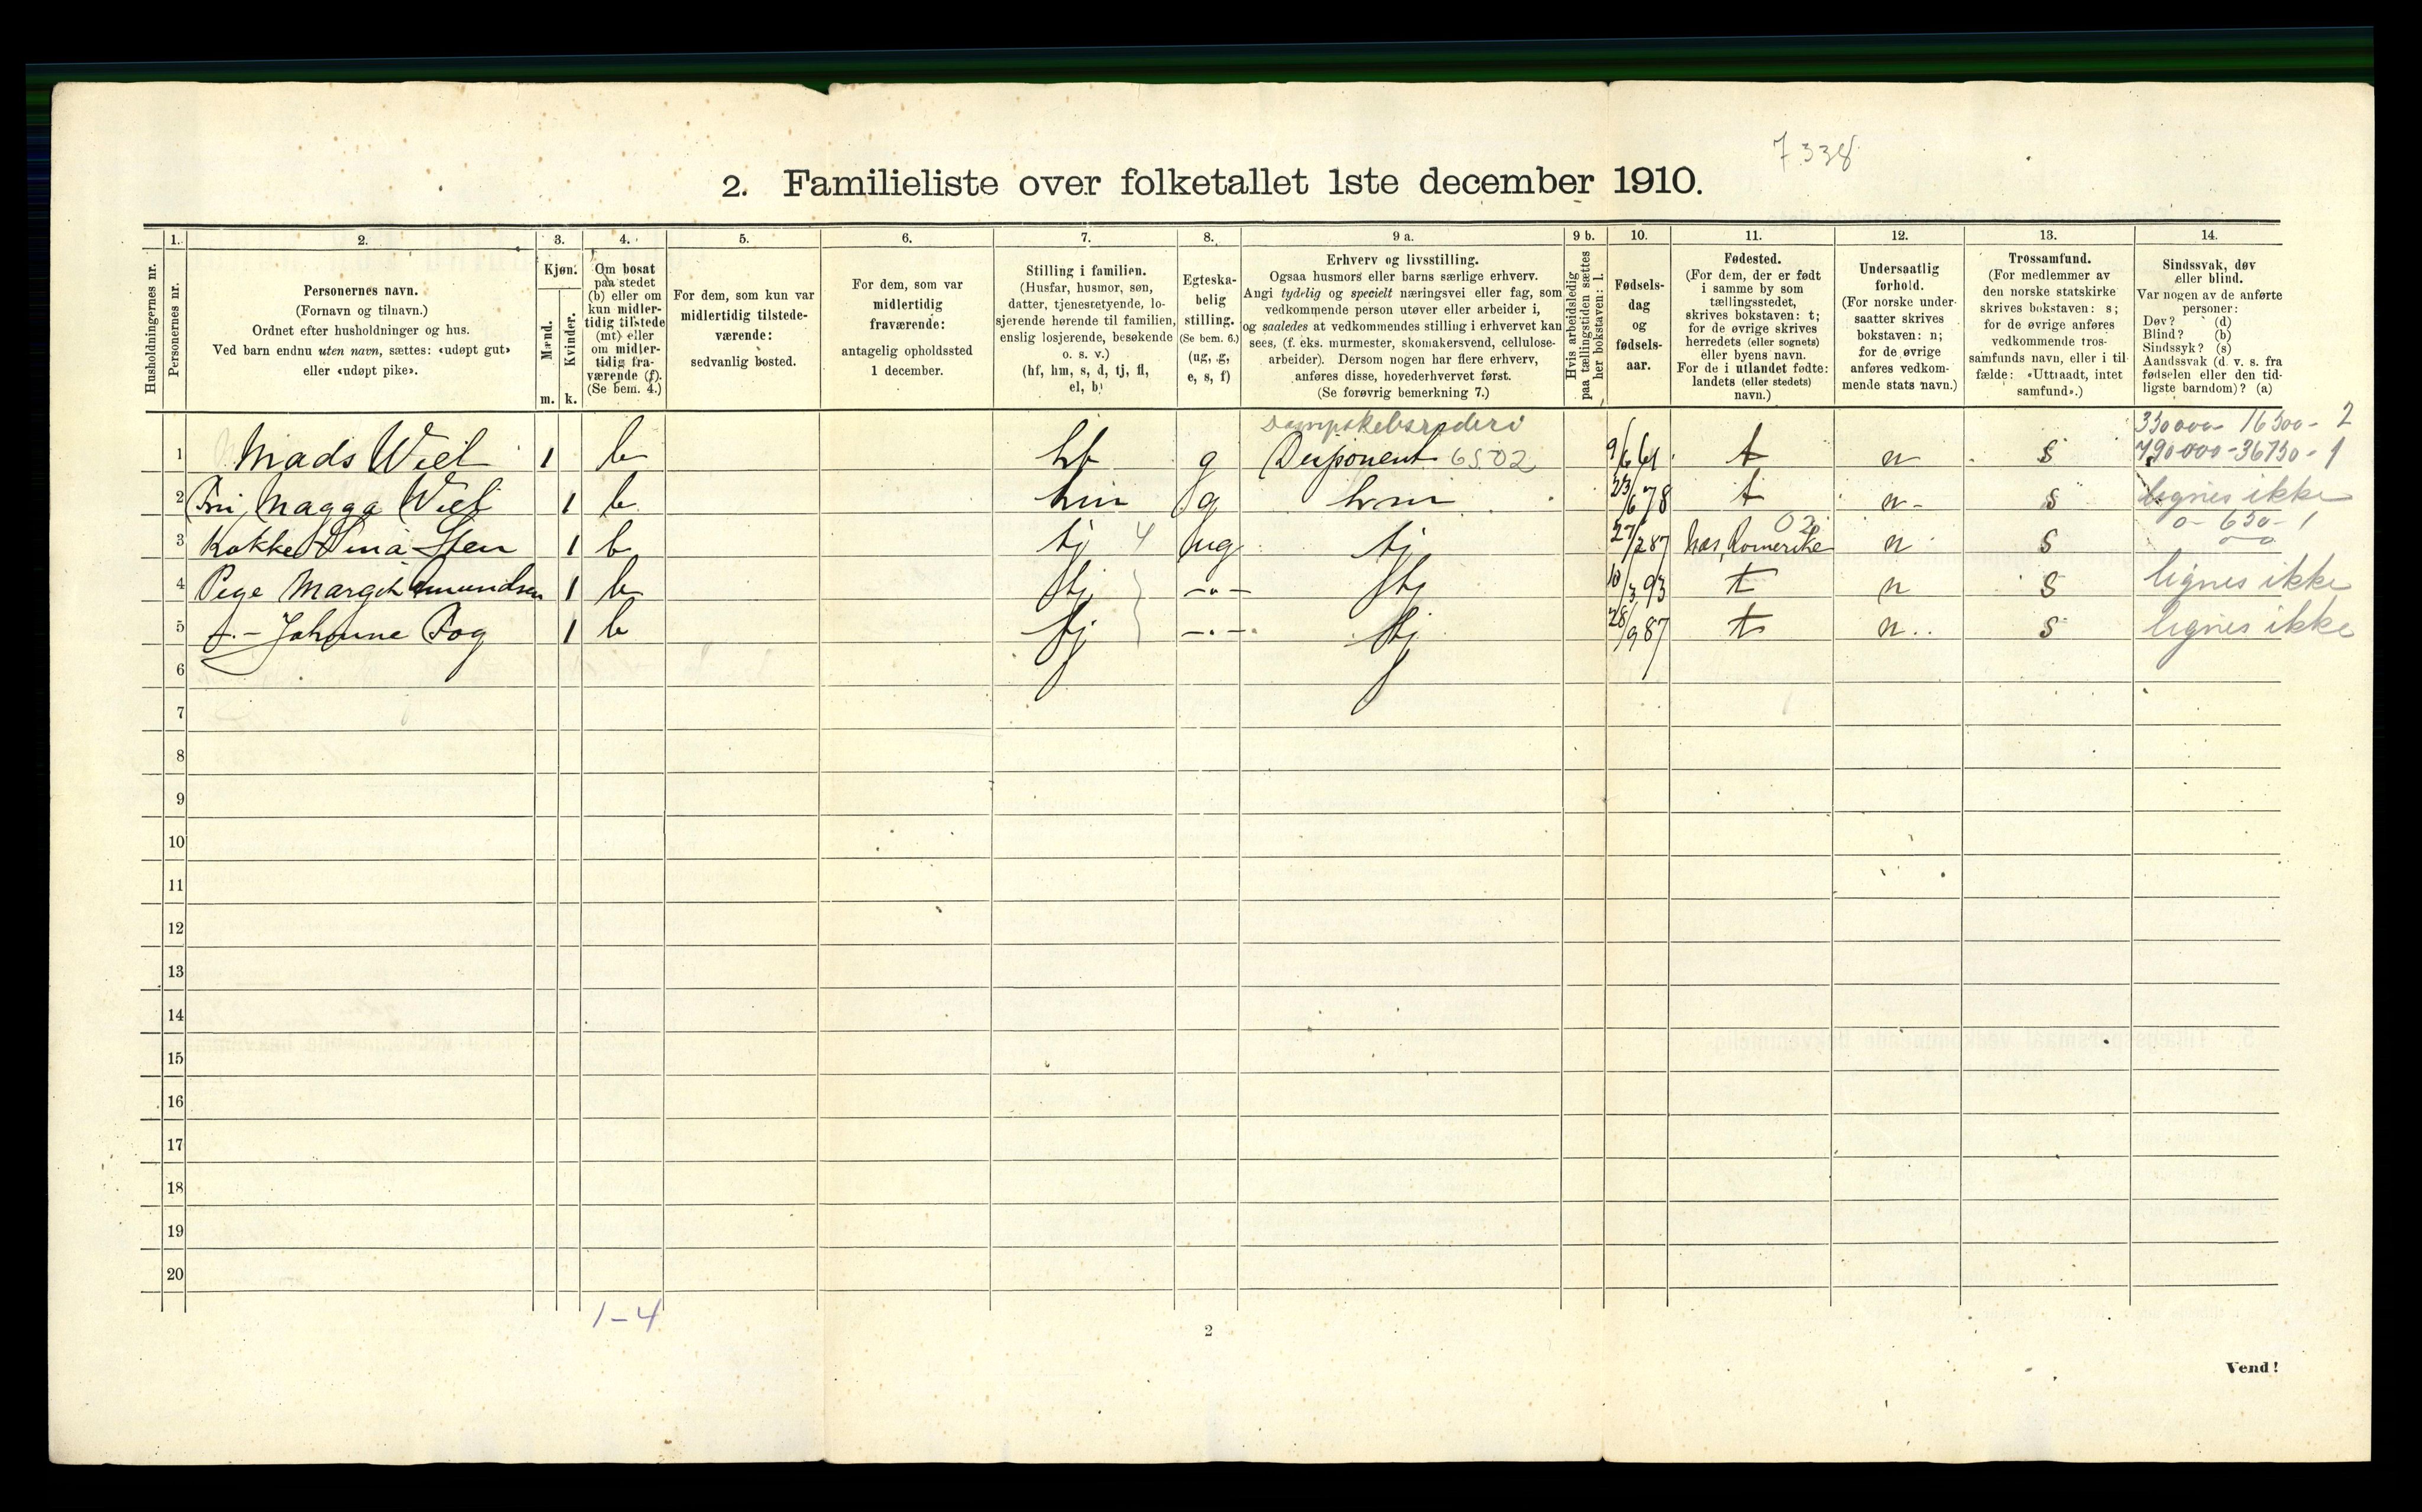 7338
2. Familieliste over folketallet 1ste december 1910.
1. 2. 3. 4. 5. 6. 7. 8. 9 a. 9 b. 10. 11. 12. 13. 14.
Husholdningernes nr.
Personernes nr.
Personernes navn.
(Fornavn og tilnavn.)
Ordnet efter husholdninger og hus.
Ved barn endnu uten navn, sættes: «udøpt gut»
eller «udøpt pike».
Kjøn.
Mænd.
Kvinder.
m. k.
Om bosat
paa stedet
(b) eller om
kun midler-
tidig tilstede
(mt) eller
om midler-
tidig fra-
værende (f).
(Se bem. 4.)
For dem, som kun var
midlertidig tilstede-
værende:
sedvanlig bosted.
For dem, som var
midlertidig
fraværende:
antagelig opholdssted
1 december.
Stilling i familien.
(Husfar, husmor, søn,
datter, tjenestetyende, lo-
sjerende hørende til familien,
enslig losjerende, besøkende
o. s. v.)
(hf, hm, s, d, tj, fl,
el, b)
Egteska-
belig
stilling.
(Se bem. 6.)
(ug, g,
e, s, f)
Erhverv og livsstilling.
Ogsaa husmors eller barns særlige erhverv.
Angi tydelig og specielt næringsvei eller fag, som
vedkommende person utøver eller arbeider i,
og saaledes at vedkommendes stilling i erhvervet kan
sees, (f. eks. murmester, skomakersvend, cellulose-
arbeider). Dersom nogen har flere erhverv,
anføres disse, hovederhvervet først.
(Se forøvrig bemerkning 7.)
Hvis arbeidsledig
paa tællingstiden sættes
her bokstaven: l.
Fødsels-
dag
og
fødsels-
aar.
Fødested.
(For dem, der er født
i samme by som
tællingsstedet,
skrives bokstaven: t;
for de øvrige skrives
herredets (eller sognets)
eller byens navn.
For de i utlandet fødte:
landets (eller stedets)
navn.)
Undersaatlig
forhold.
(For norske under-
saatter skrives
bokstaven: n;
for de øvrige
anføres vedkom-
mende stats navn.)
Trossamfund.
(For medlemmer av
den norske statskirke
skrives bokstaven: s;
for de øvrige anføres
vedkommende tros-
samfunds navn, eller i til-
fælde: «Uttraadt, intet
samfund».)
Sindssvak, døv
eller blind.
Var nogen av de anførte
personer:
Døv? (d)
Blind? (b)
Sindssyk? (s)
Aandssvak (d. v. s. fra
fødselen eller den tid-
ligste barndom)? (a)
Dampskebsrederi 350000- 16500- 2
1 Mads Wiel 1 b hf g Disponent 6502 9/6 61 t n s 790000-36750-1
2 Fru Magga Wiel 1 b hm g hm 23/6 78 t n - s lignes ikke
02 0- 650- 1
3 Kokke 1 b tj 4 ug tj 27/2 87 Næs, Romerike n s
4 Pige Margit Amundsen 1 b tj -"- tj 10/3 93 t n s lignes ikke
5 -"- Johanne Fog 1 b tj -"- tj 28/9 87 t n s lignes ikke
6
7
8
9
10
11
12
13
14
15
16
17
18
19
20
1-4
2
Vend!